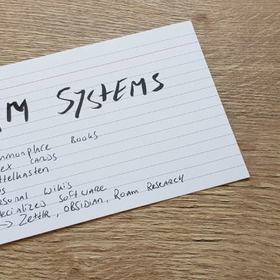 M SYSTEMS
mmonplace Books
ex cards
ttelkasten
s
rsonal Wikis
ecialized software
→ Zettlr, Obsidian, Roam Research